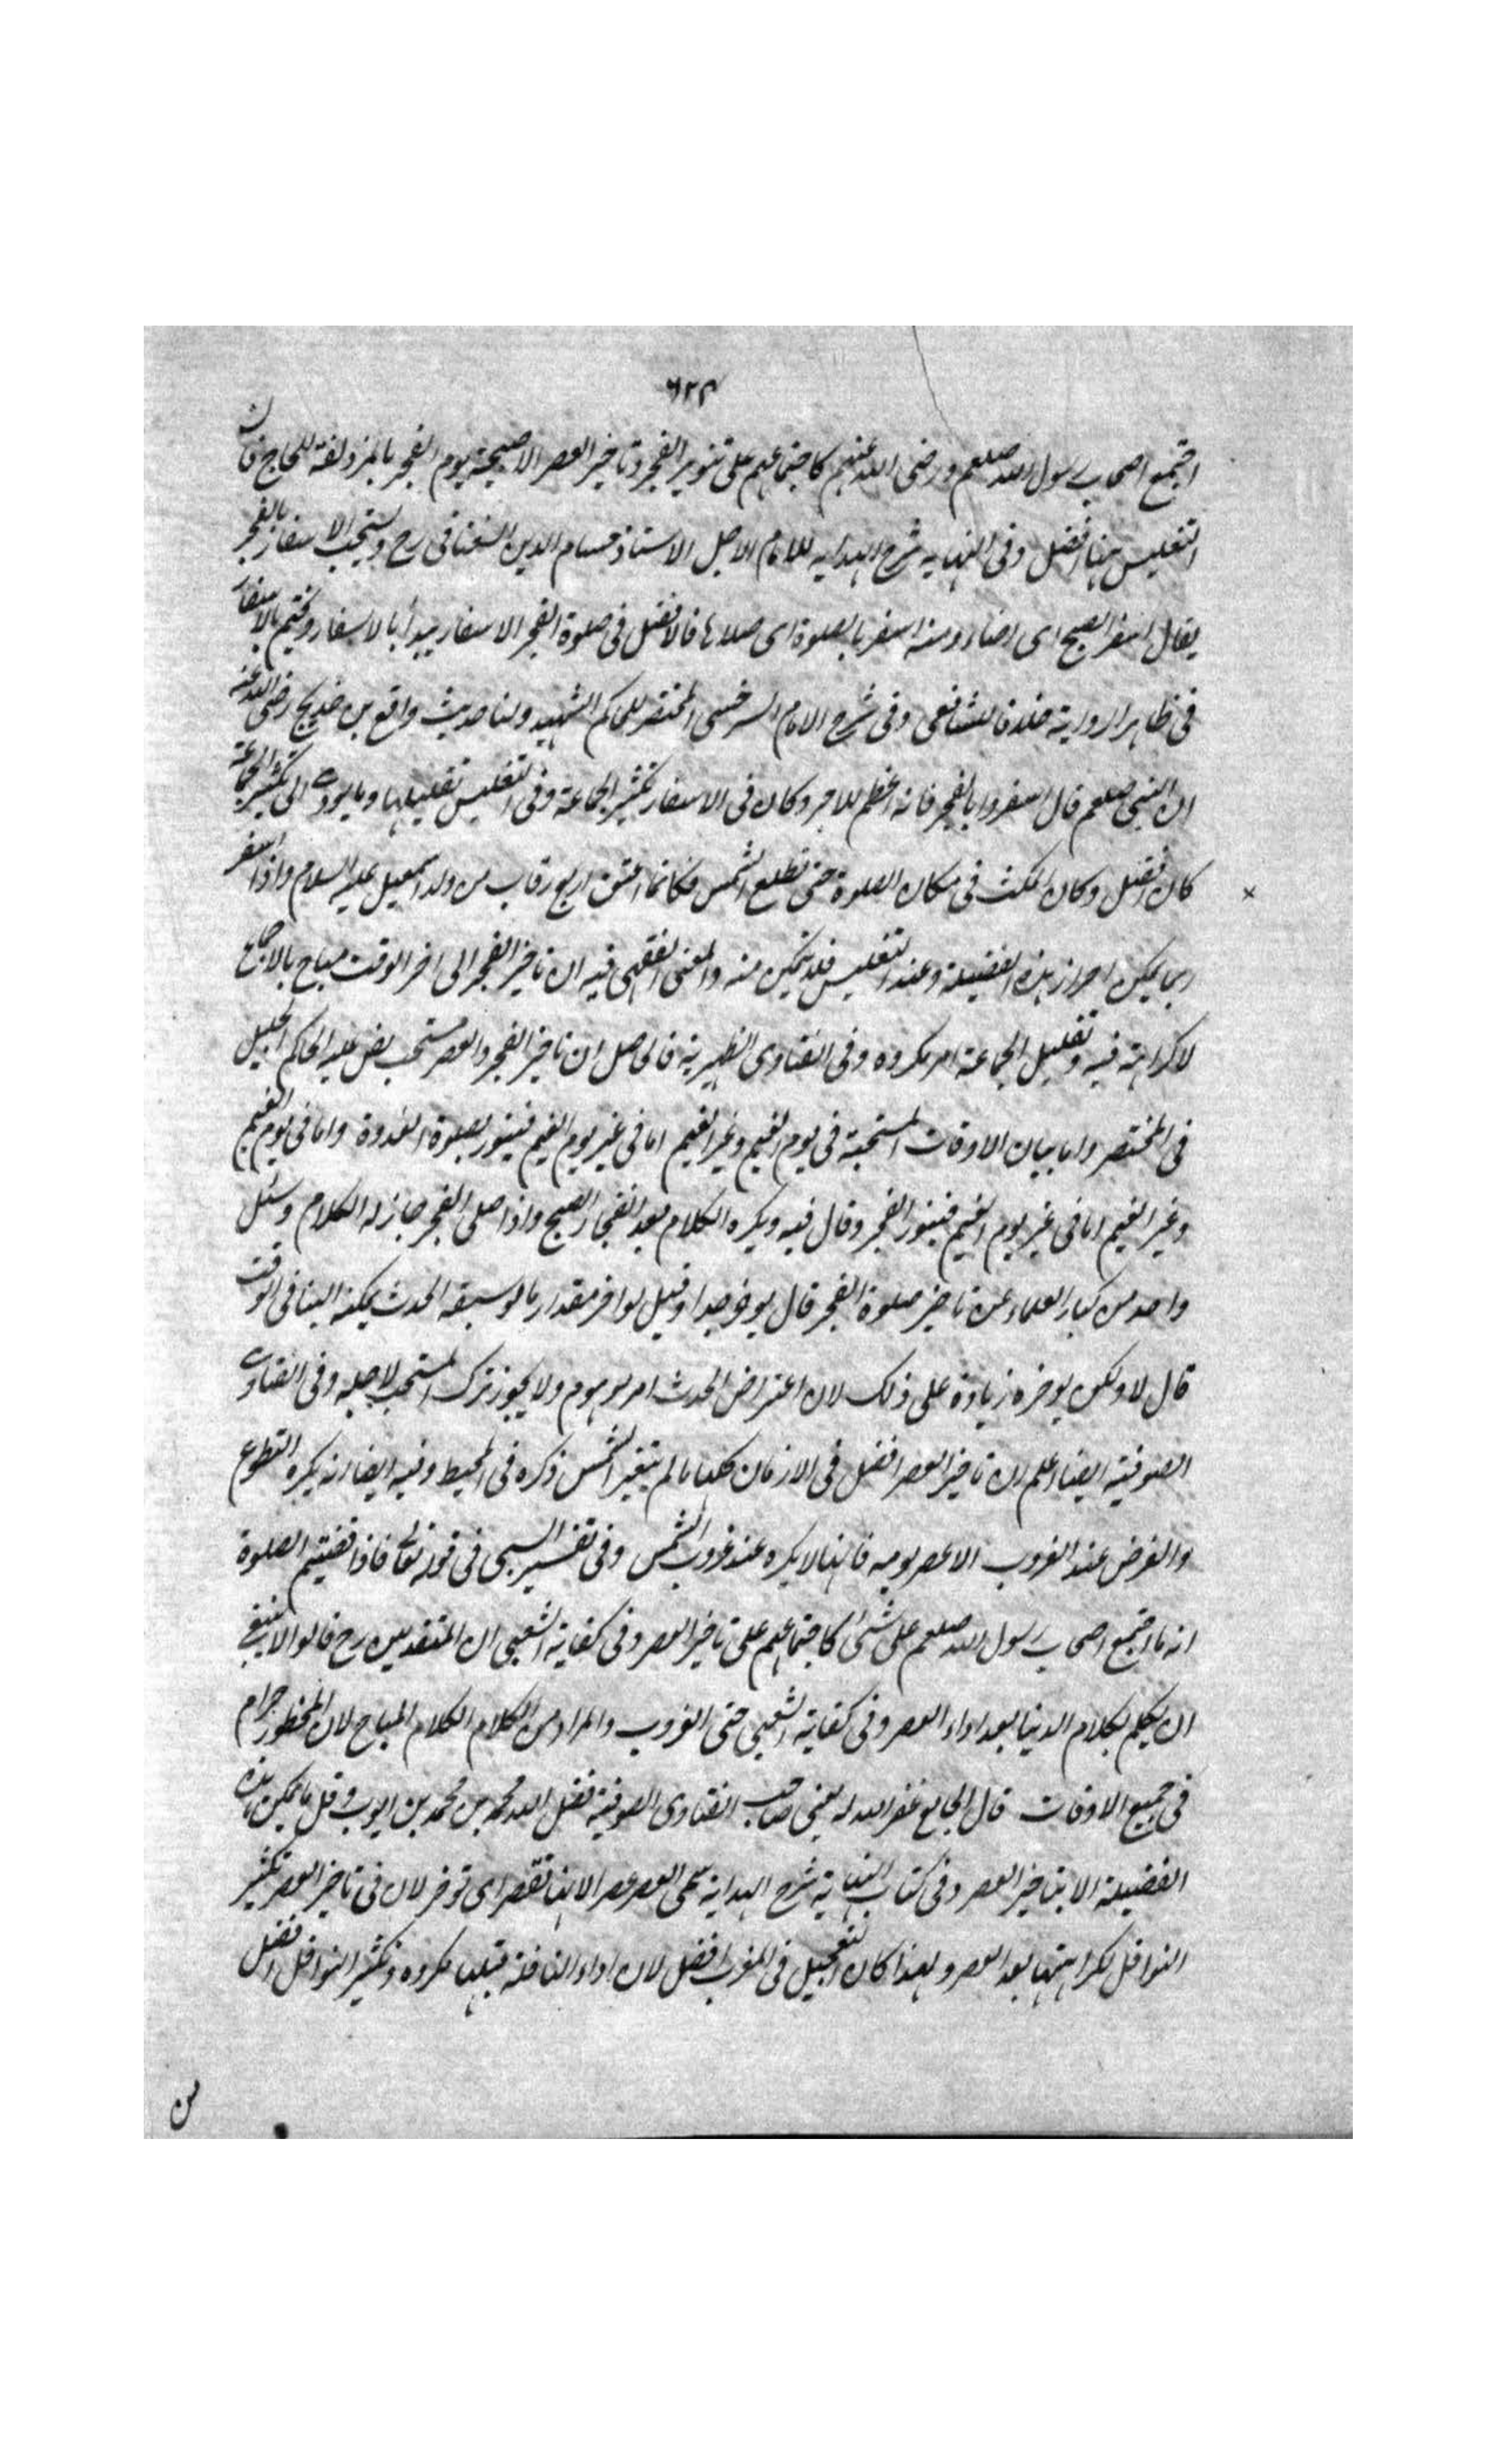 ٦٢٣
اجتمع اصحاب رسول الله صلعم ورضى الله عنهم كاجتماعهم على تنوير الفجر وتاخير العصر الا صبيحة يوم الفجر بالمزدلفة للحاج فان
التغليس هنا افضل وفى النهايه شرح الهدايه للامام الاجل الاستاذ حسام الدين السغناقى رح ويستحب الاسفار بالفجر
يقال اسفر الصبح اى اضاء ومنه اسفر بالصلوة اى صلاها فالافضل فى صلوة الفجر الاسفار يبدأ بالاسفار ويختم بالاسفار
فى ظاهر الرواية خلافا للشافعى وفى شرح الامام السرخسى المختصر للحاكم الشهيد ولنا حديث رافع بن خديج رضى الله عنه
ان النبى صلعم قال اسفروا بالفجر فانه اعظم للاجر وكان فى الاسفار تكثير الجماعة وفى التغليس تقليلها وما يودى الى تكثير الجماعة
كان افضل وكان المكث فى مكان الصلوة حتى تطلع الشمس فكانما اعتق اربع رقاب من ولد اسمعيل عليه السلام واذا اسفر
ربما يمكن احراز هذه الفضيلة وعند التغليس فلا يتمكن منه والمعنى الفقهى فيه ان تاخير الفجر الى اخر الوقت مباح بالاجماع
لا كراهة فيه وتقليل الجماعة امر مكروه وفى الفتاوى الظهيرية فالحاصل ان تاخير الفجر والعصر مستحب نص عليه الحاكم الجليل
فى المختصر واما بيان الاوقات المستحبة فى يوم الغيم وغير الغيم اما فى غير يوم الغيم فينور بصلوة الغدوة واما فى يوم الغيم
وغير الغيم اما فى غير يوم الغيم فينور الفجر وقال فيه ويكره الكلام بعد انفجار الصبح واذا صلى الفجر جاز له الكلام وسئل
واحد من كبار العلماء عن تاخير صلوة الفجر قال يوخر جدا وقيل لو اخر مقدار ما لو سبقه الحدث يمكنه البنا فى الوقت
قال لا ولكن يوخره زيادة على ذلك لان اعتراض الحدث امر موهوم ولا يجوز ترك المستحب لاجله وفى الفتاوى
الصوفية ايضا اعلم ان تاخير العصر افضل فى الازمان كلها ما لم يتغير الشمس ذكره فى المحيط وفيه ايضا انه يكره التطوع
والفرض عند الغروب الا عصر يومه فانها لا يكره عند غروب الشمس وفى تفسير فى قوله تعالى فاذا قضيتم الصلوة
انه ما اجتمع اصحاب رسول الله صلعم على شئ كاجتماعهم على تاخير العصر وفى كفاية الشعبى ان المتقدمين رح قالوا لا ينبغى
ان يتكلم بكلام الدنيا بعد اداء العصر وفى كفاية الشعبى حتى الغروب والمراد من الكلام الكلام المباح لان المحظور حرام
فى جميع الاوقات قال الجامع غفر الله له يعنى صاحب الفتاوى الصوفية فضل الله محمد بن محمد بن ايوب وقل ما يمكن هذه
الفضيلة الا بتاخير العصر وفى كتاب النهاية شرح الهداية سمى العصر عصرا لانها تعصر اى توخر لان فى تاخير العصر تكثير
النوافل لكراهتها بعد العصر ولهذا كان التعجيل فى المغرب افضل لان اداء النافلة قبلها مكروه وتكثير النوافل افضل
من